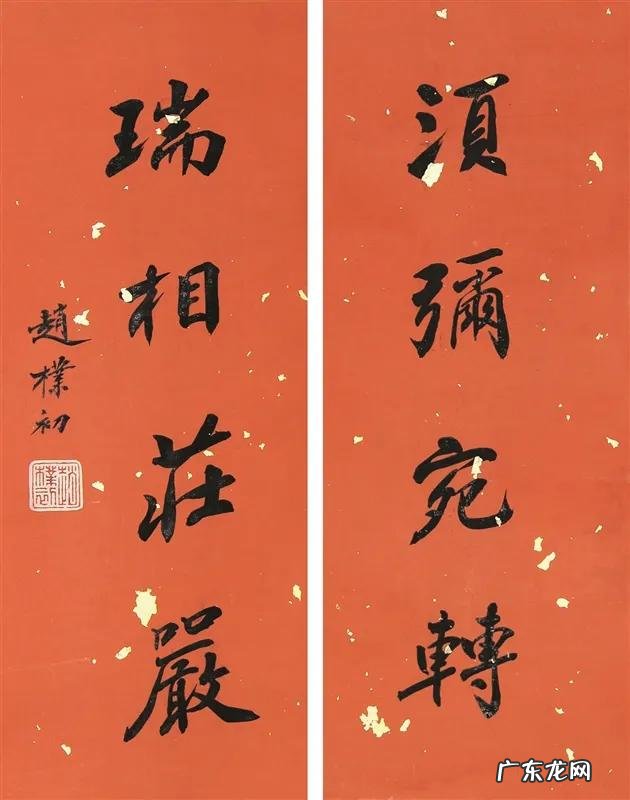 須彌宛轉
瑞相莊嚴
趙樸初
广东龙网